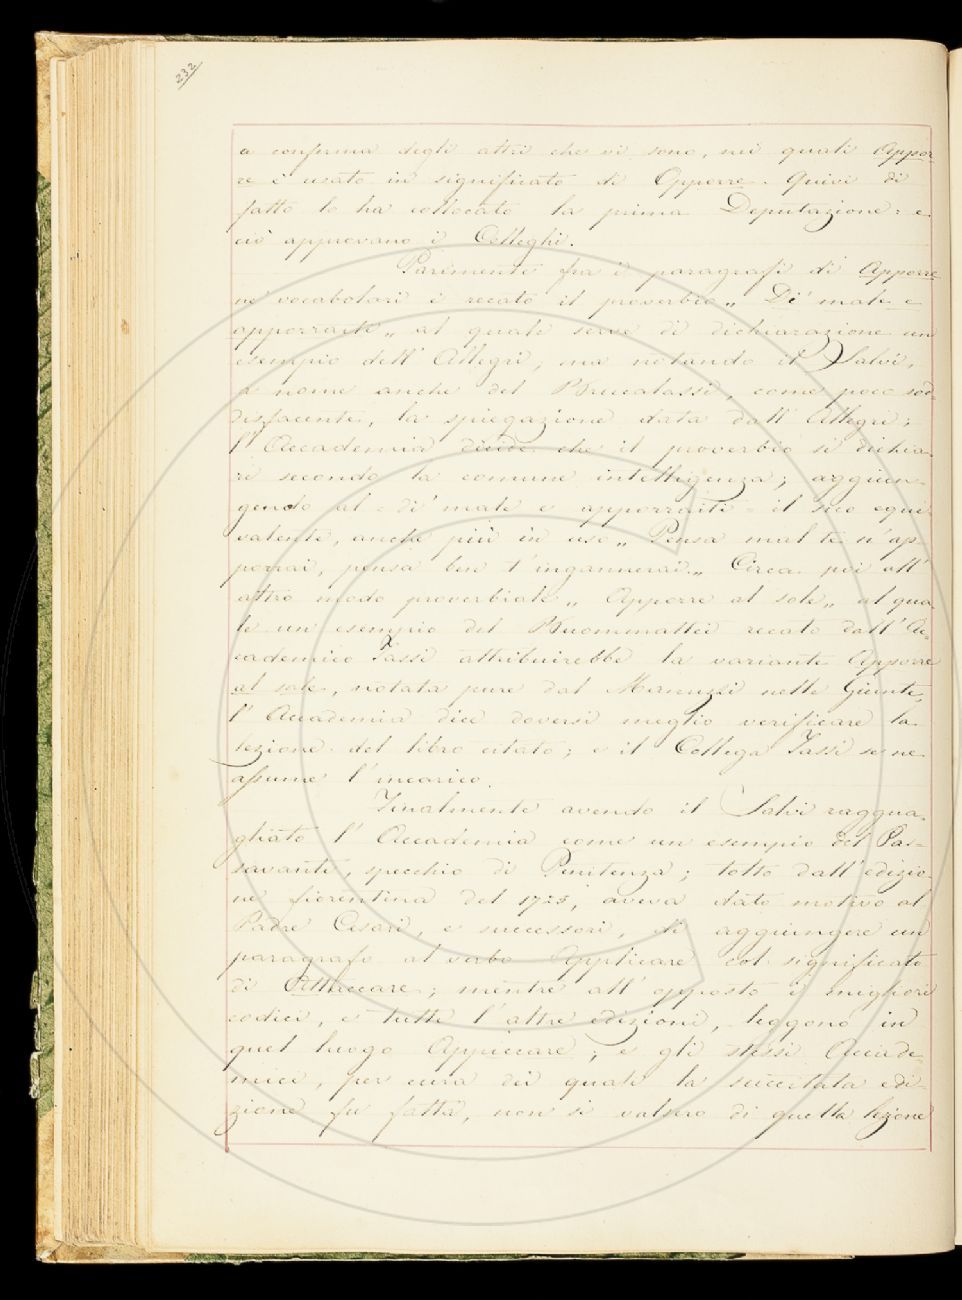 232
a conferma degli altri che vi sono, nei quali Appor-
re è usato in significato di Opporre. Quivi di
fatto lo ha collocato la prima Deputazione: e
ciò approvano i Colleghi.
Parimente fra i paragrafi di Apporre
ne' vocabolari è recato il proverbio „ Di' male e
apporraiti „ al quale serve di dichiarazione un
esempio dell' Allegri; ma notando il Salvi,
a nome anche del Brucalassi, come poco sod-
disfacente, la spiegazione data dall' Allegri;
l' Accademia decide che il proverbio si dichia-
ri secondo la comune intelligenza; aggiun-
gendo al = di' male e apporraiti = il suo equi-
valente, anche più in uso „ Pensa mal te n' ap-
porrai, pensa ben t' ingannerai. „ Circa poi all'
altro modo proverbiale „ Apporre al sole „ al qua-
le un esempio del Buommattei recato dall' Ac-
cademico Tassi attribuirebbe la variante Apporre
al sale, notata pure dal Manuzzi nelle Giunte,
l' Accademia dice doversi meglio verificare la
lezione del libro citato; e il Collega Tassi se ne
assume l' incarico.
Finalmente avendo il Salvi raggua-
gliato l' Accademia come un esempio del Pas-
savanti, specchio di Penitenza; tolto dall' edizio-
ne fiorentina del 1725, aveva dato motivo al
Padre Cesari, e successori, di aggiungere un
paragrafo al verbo Applicare col significato
di Attaccare; mentre all' opposto i migliori
codici, e tutte l' altre edizioni, leggono in
quel luogo Appiccare; e gli stessi Accade-
mici, per cura dei quali la succitata edi-
zione fu fatta, non si valsero di quella lezione